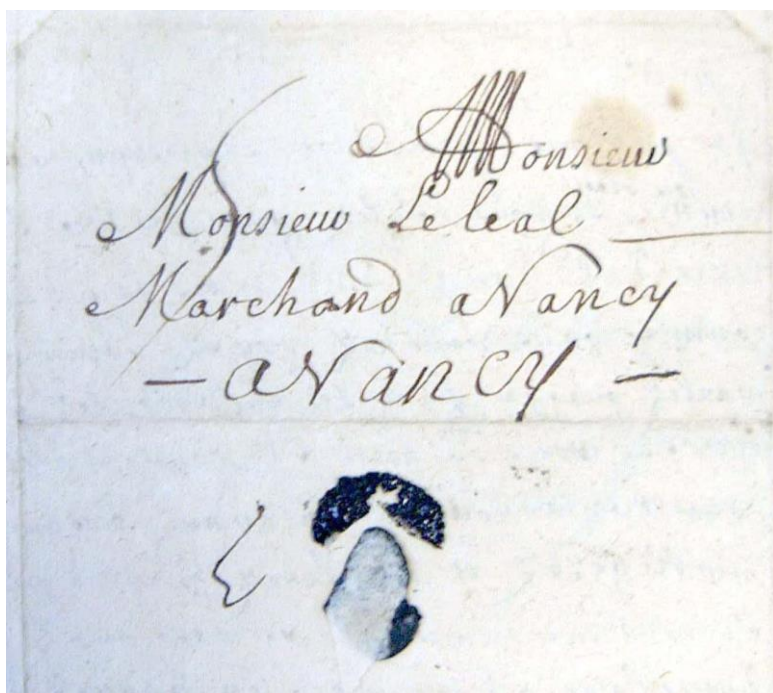 A Monsieur
Monsieur Leleal
Marchand a Nancy
— a Nancy —